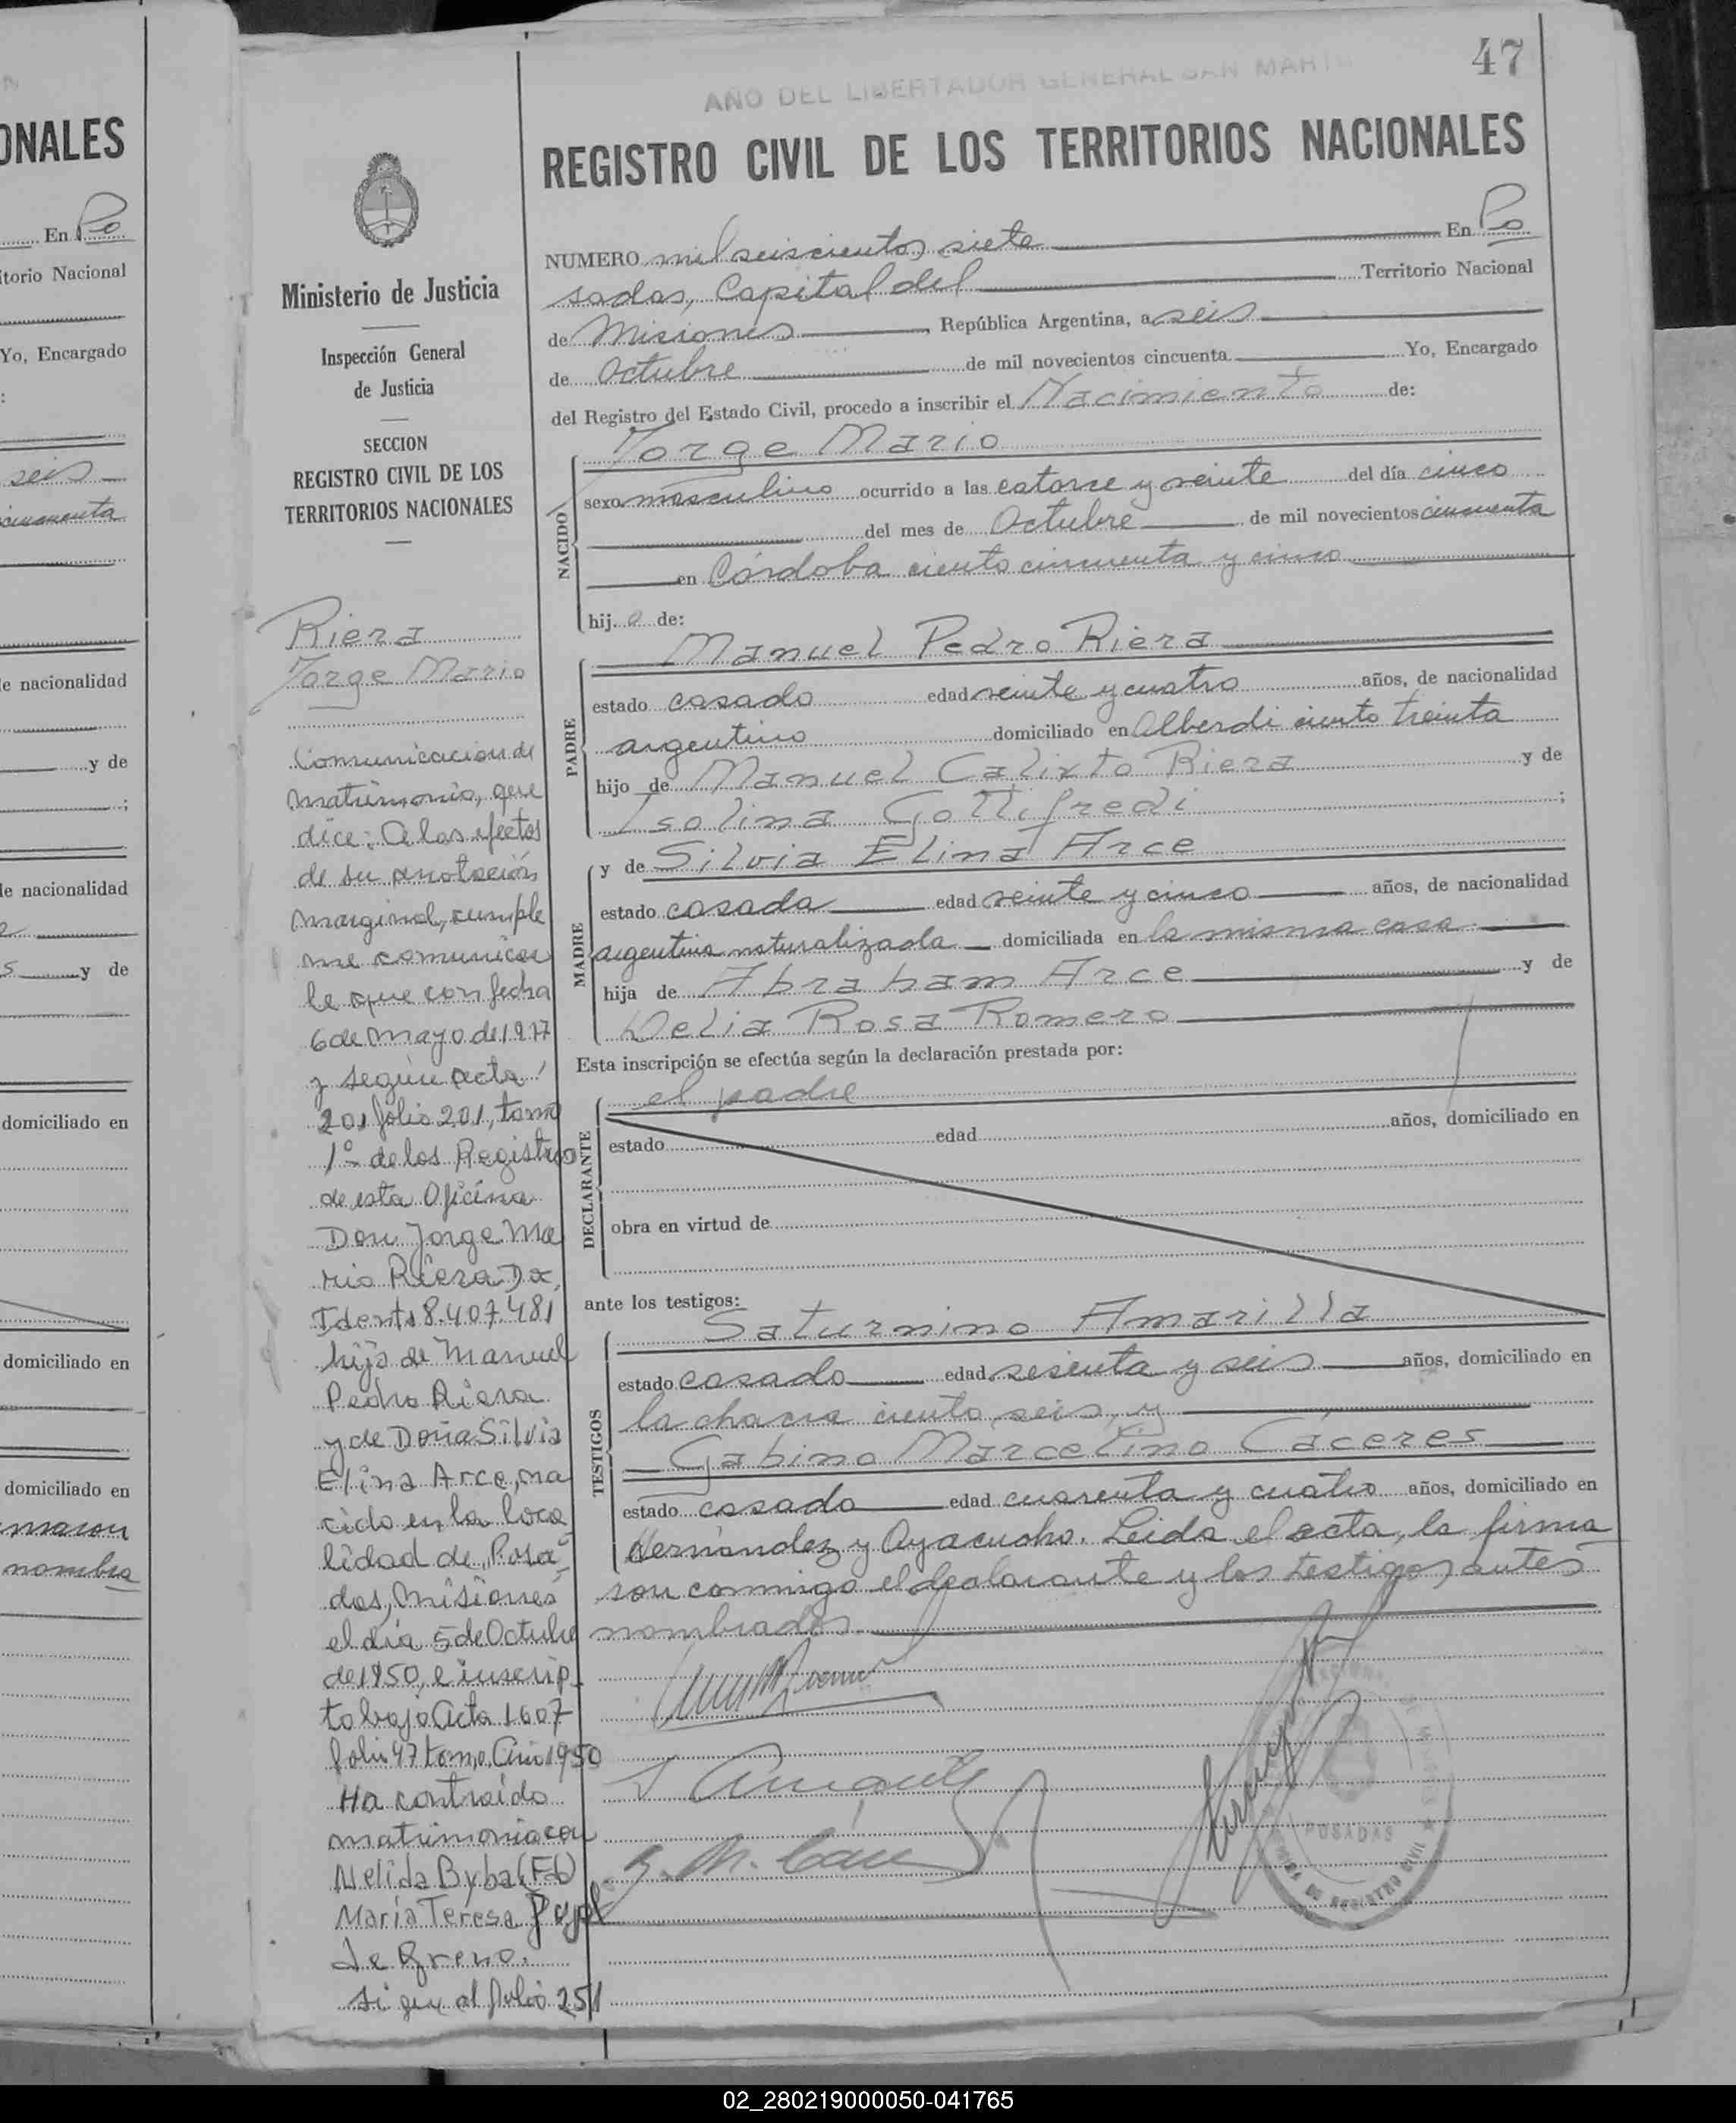 47
AÑO DEL LIBERTADOR GENERAL SAN MARTIN
REGISTRO CIVIL DE LOS TERRITORIOS NACIONALES
NUMERO mil seiscientos siete En Po
sadas, Capital del Territorio Nacional
de Misiones, República Argentina, a seis
de Octubre de mil novecientos cincuenta Yo, Encargado
del Registro del Estado Civil, procedo a inscribir el Nacimiento de:
Jorge Mario
NACIDO
sexo masculino ocurrido a las catorce y veinte del día cinco
del mes de Octubre de mil novecientos cincuenta
en Córdoba ciento cincuenta y cinco
hijo de:
Manuel Pedro Riera
PADRE
estado casado edad veinte y cuatro años, de nacionalidad
argentino domiciliado en Alberdi ciento treinta
hijo de Manuel Calixto Riera y de
Isolina Gottifredi ;
y de Silvia Elina Arce
MADRE
estado casada edad veinte y cinco años, de nacionalidad
argentina naturalizada domiciliada en la misma casa
hija de Abraham Arce y de
Delia Rosa Romero
Esta inscripción se efectúa según la declaración prestada por:
el padre
DECLARANTE
estado edad años, domiciliado en
obra en virtud de
ante los testigos:
Saturnino Amarilla
TESTIGOS
estado casado edad sesenta y seis años, domiciliado en
la chacra ciento seis, y
Gabino Marcelino Cáceres
estado casado edad cuarenta y cuatro años, domiciliado en
Hernández y Ayacucho. Leida el acta, la firma
ron conmigo el declarante y los testigos antes
nombrados.
POSADAS
Ministerio de Justicia
Inspección General
de Justicia
SECCION
REGISTRO CIVIL DE LOS
TERRITORIOS NACIONALES
Riera
Jorge Mario
Comunicacion de
matrimonio, que
dice: A los efectos
de su anotación
marginal, cumple
me comunicar
le que con fecha
6 de Mayo de 1977
y según acta
201 folio 201, tomo
1º de los Registros
de esta Oficina
Don Jorge Ma
rio Riera Dx.
Idents 8.407.481
hijo de Manuel
Pedro Riera
y de Doña Silvia
Elina Arce, na
cido en la loca
lidad de Posa
das, Misiones
el día 5 de Octubre
de 1950, e inscrip
to bajo Acta 1607
folio 47 tomo, Año 1950
Ha contraído
matrimonio con
Nelida Byba
María Teresa
sigue al folio 251
ONALES
En Po
itorio Nacional
Yo, Encargado
:
seis
cincuenta
de nacionalidad
y de
;
de nacionalidad
y de
domiciliado en
domiciliado en
domiciliado en
nombra
02_280219000050-041765